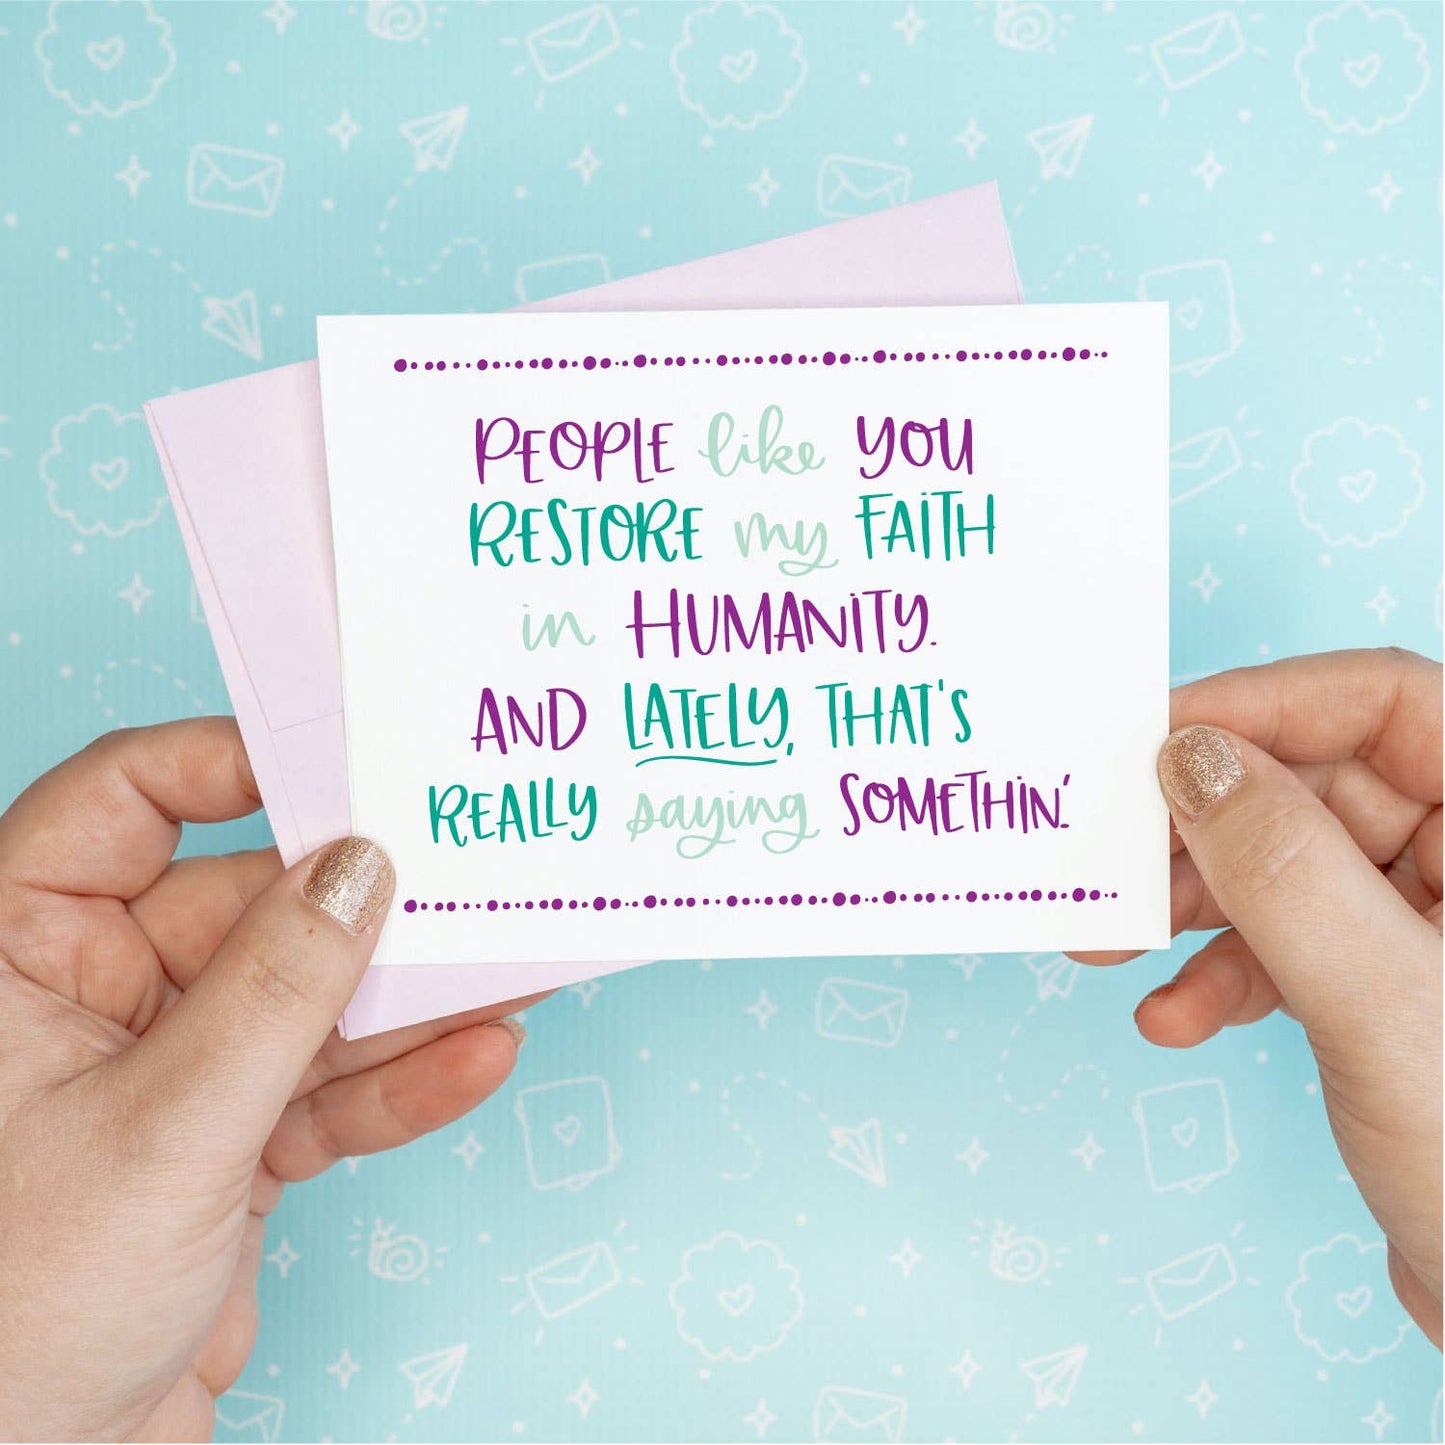 PEOPLE like YOU
RESTORE my FAITH
in HUMANITY.
AND LATELY, THAT'S
REALLY saying SOMETHIN'.